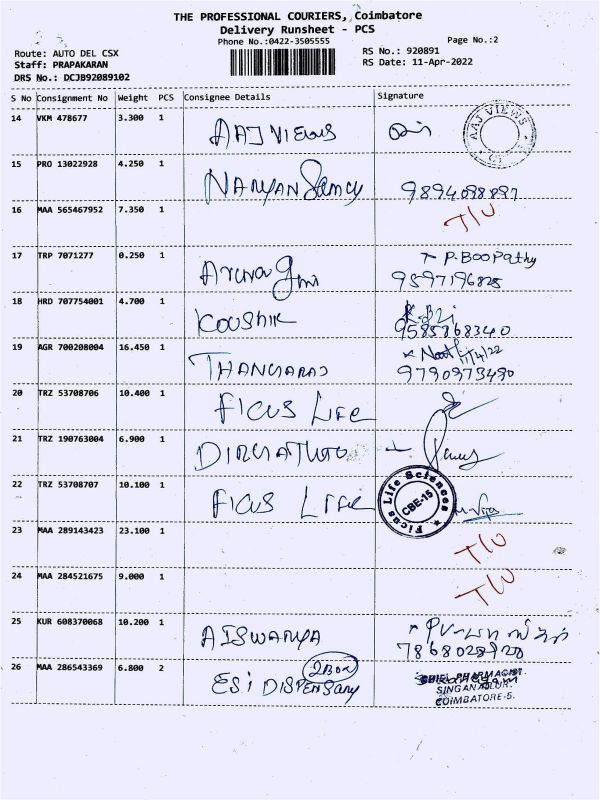 THE PROFESSIONAL COURIERS, Coimbatore
Delivery Runsheet - PCS
Phone No.:0422-3505555
Page No.:2
Route: AUTO DEL CSX
RS No.: 920891
Staff: PRAPAKARAN
RS Date: 11-Apr-2022
DRS No.: DCJB92089102
S No Consignment No Weight PCS Consignee Details Signature
14 VKM 478677 3.300 1 AAJ VIEWS
AAJ VIEWS
15 PRO 13022928 4.250 1 NARYAN Samcy 9894098897
16 MAA 565467952 7.350 1 T/U
17 TRP 7071277 0.250 1 P. BOOPathy
9597196825
18 HRD 707754001 4.700 1 KOUSHIK
9585868340
19 AGR 700208004 16.450 1 THANGARAJ 11/4/22
9790973490
20 TRZ 53708706 10.400 1 FICUS LIFE
21 TRZ 190763004 6.900 1
22 TRZ 53708707 10.100 1 FICUS LIFE
Ficus Life Sciences
CBE-15
23 MAA 289143423 23.100 1 T/U
24 MAA 284521675 9.000 1 T/U
25 KUR 608370068 10.200 1 AISWARYA
7868028920
26 MAA 286543369 6.800 2 2 Box
ESI DISPENSARY
CHIEF PHARMACIST.
SINGANALLUR,
COIMBATORE-5.